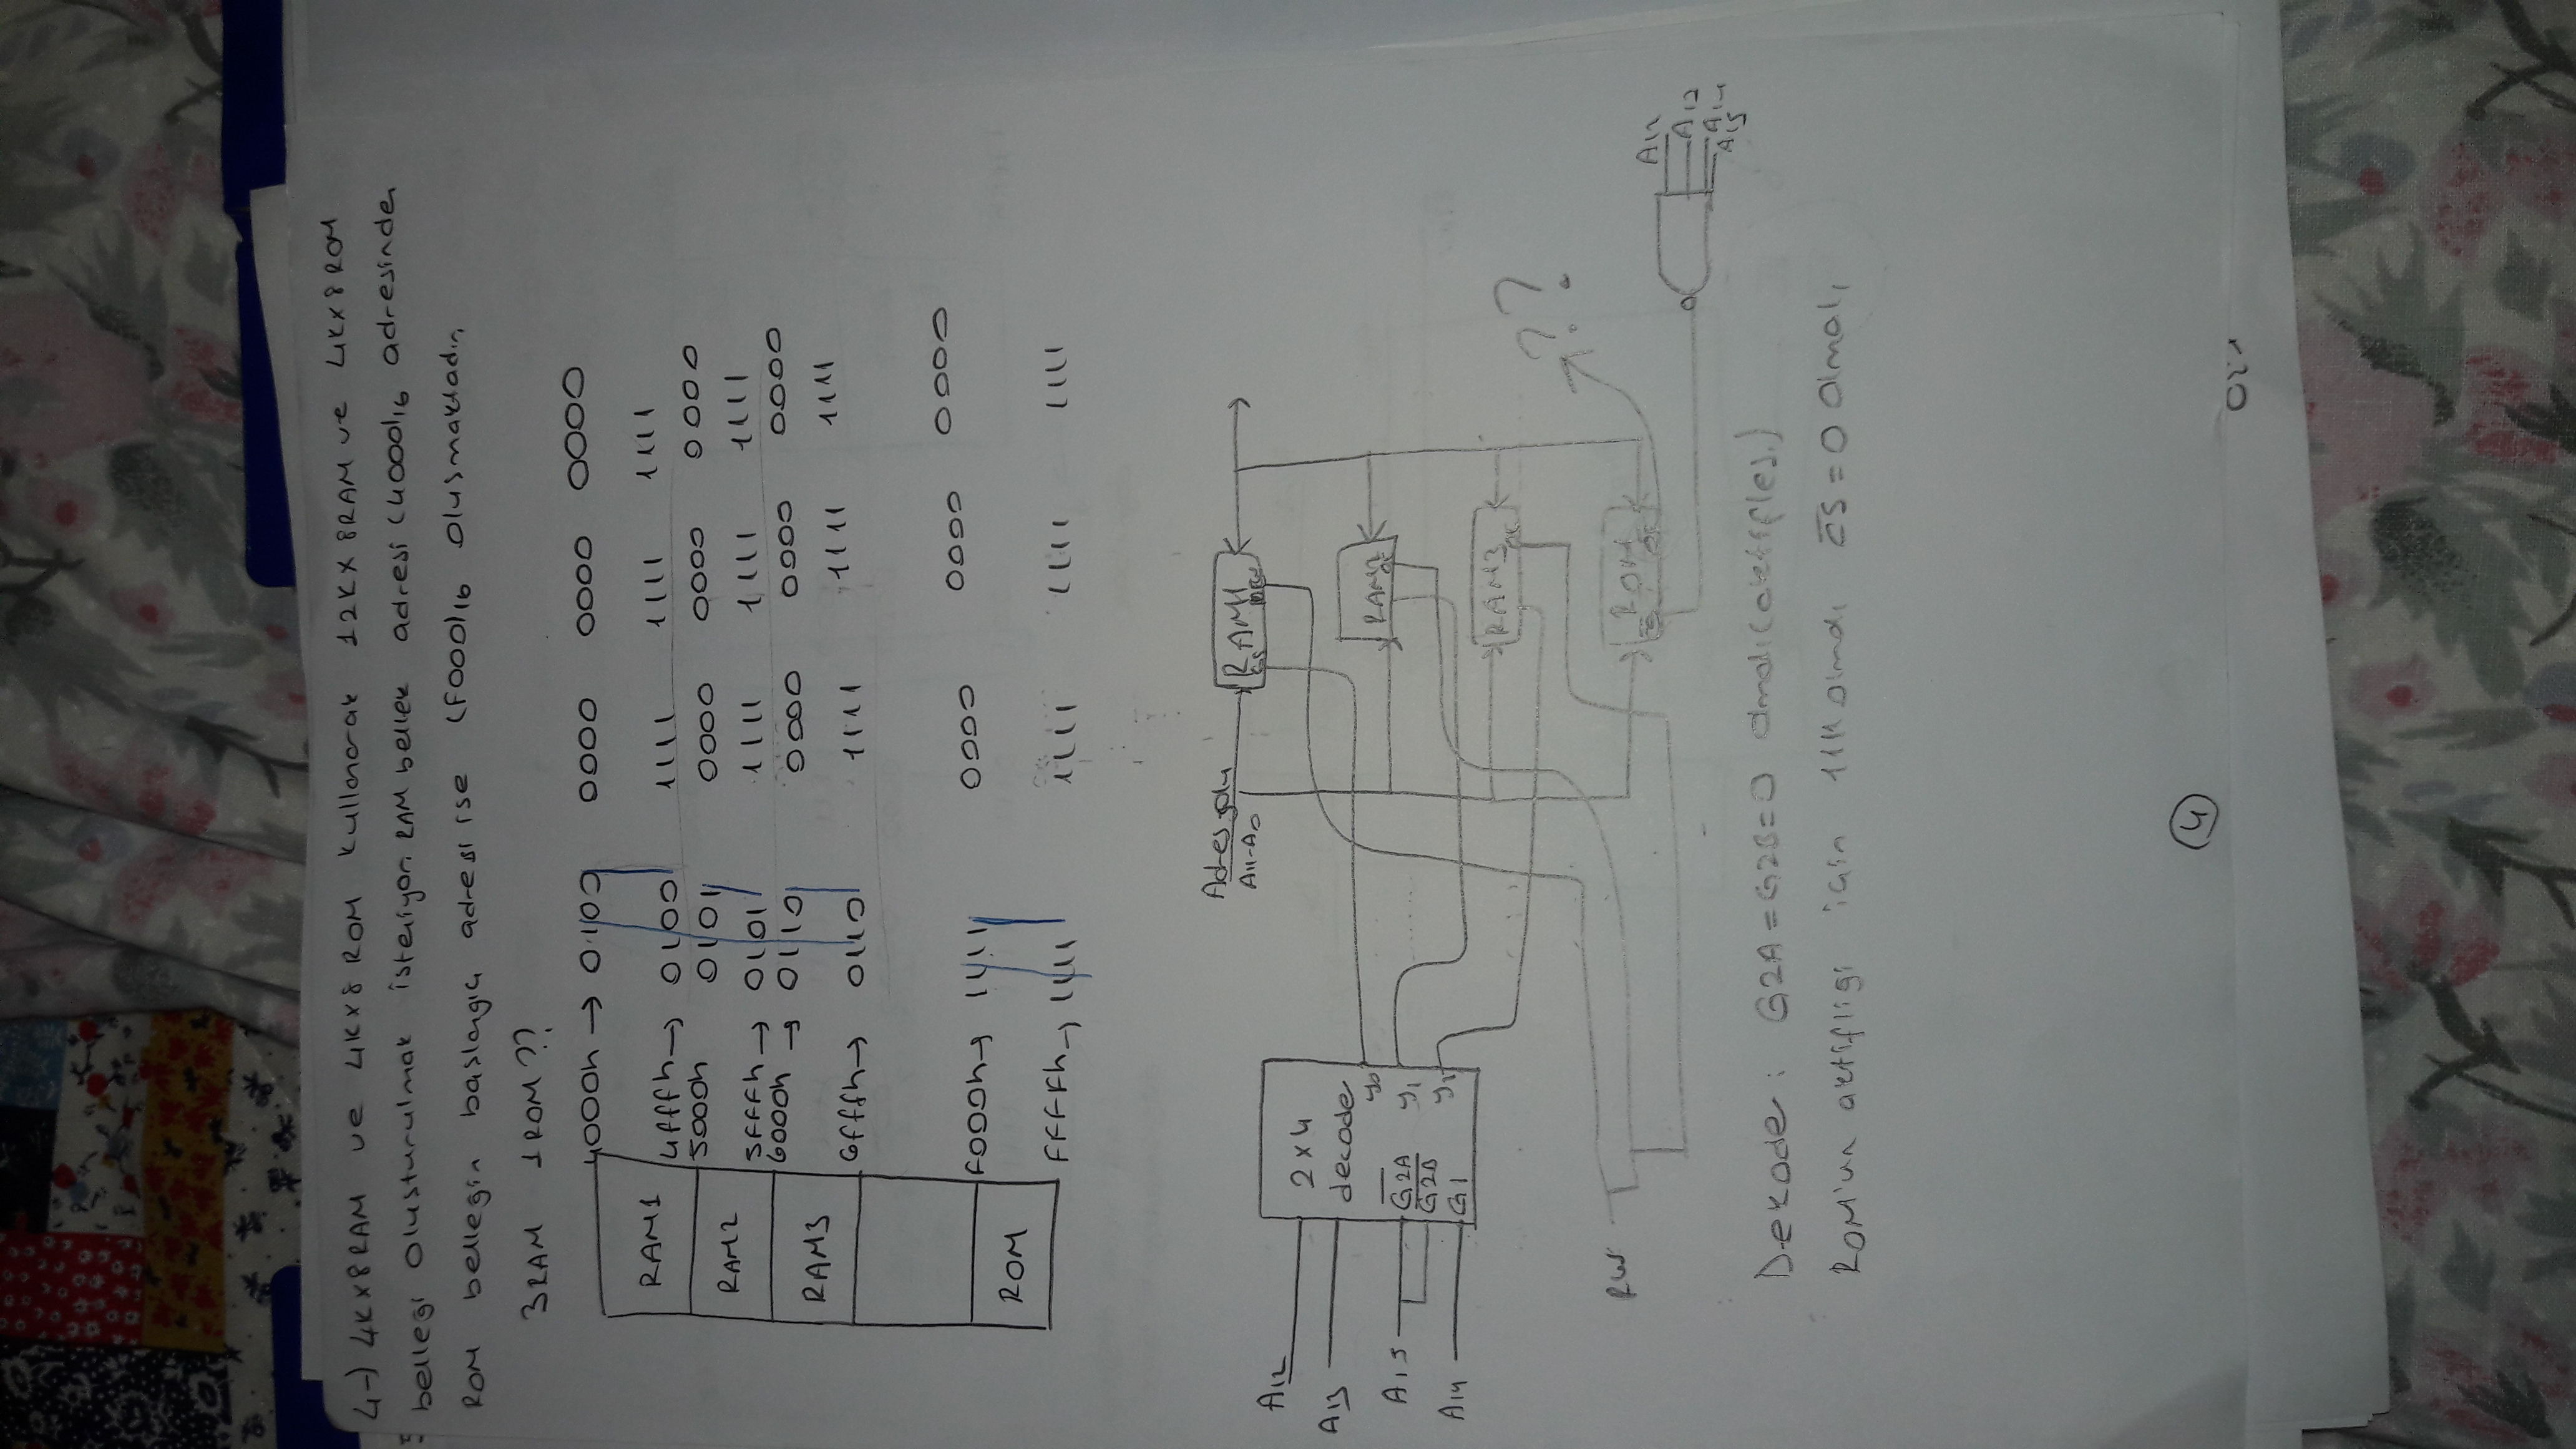 4-) 4KX8RAM ve 4KX8 ROM kullanarak 12KX8RAM ve 4KX8ROM
belleği oluşturulmak isteniyor. RAM bellek adresi (4000)16 adresinden
ROM belleğin başlangıç adresi ise (F000)16 oluşmaktadır.
3RAM 1ROM??
4000h → 0100 0000 0000 0000
RAM1
4fffh → 0100 1111 1111 1111
5000h 0101 0000 0000 0000
RAM2
5FFFh → 0101 1111 1111 1111
6000h → 0110 0000 0000 0000
RAM3
6fffh → 0110 1111 1111 1111
F000h → 1111 0000 0000 0000
ROM
FFFFh → 1111 1111 1111 1111
Adres yolu
A11-A0
RAM1
CS
A12
2x4
A13
decode
y0
RAM2
A15
G2A
y1
G2B
A14
G1
RAM3
??
RW
ROM
A12
A13
A14
A15
Dekode: G2A=G2B=0 olmalı(aktifleş.)
ROM'un aktifliği için olmalı CS=0 olmalı
4